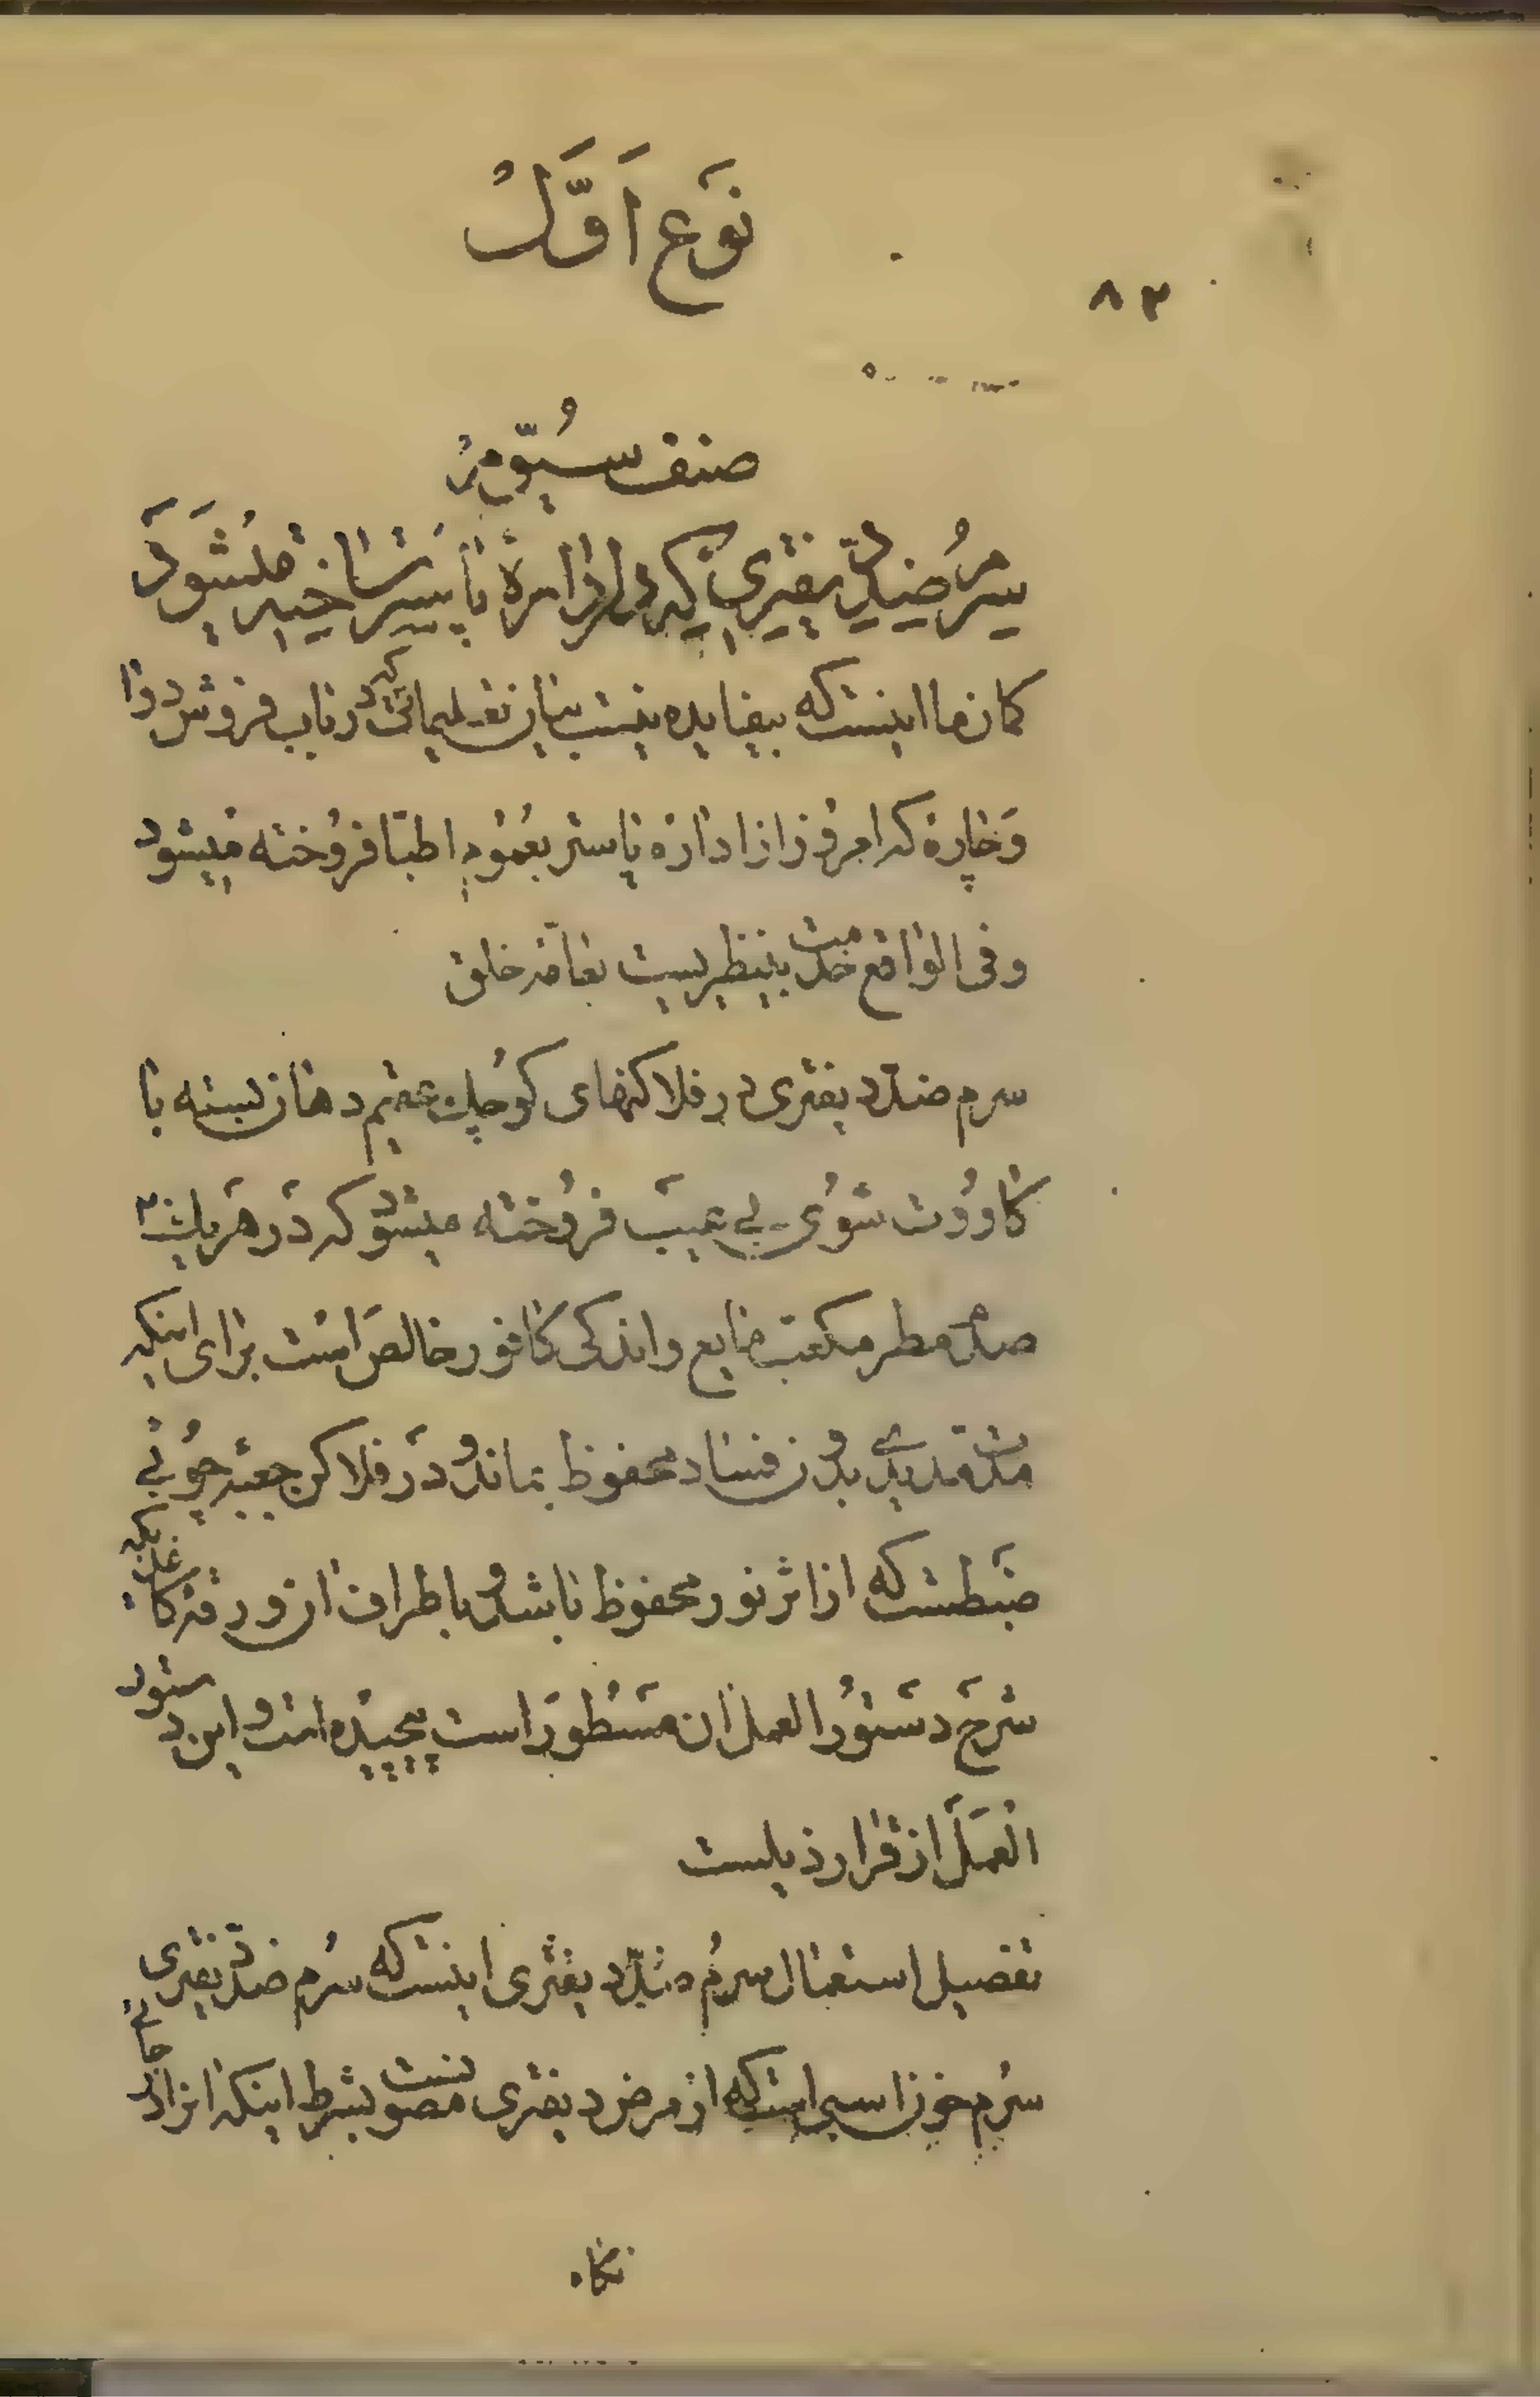 نَوع اَوَّلْ
۸۳
صنف سیُوّمْ
سرمُ ضِدِّ دیفتِری که در اداره پاستر ساخته میشَود
گمان ما اینست که بیفایده نیست بیان تعلیماتی که در باب فروش دوا
وَ چاره که امروز از اداره پاستر بعُمُوم اطبا فرُوخته میشود
و فی الواقع خدمت بینظیریست بعامّه خلق
سرم ضدّ دیفتری در فلاکنهای کوُچک عقیم دهان بسته با
کاوُوت شوُی بی عیب فرُوخته میشود که دَر هَر یک
مکعب مایع و اندکی کافور خالص است برای اینکه
مدت مدیدی بدون فساد محفوظ بماند و دَر فلاکن جعبه چوُبی
ضبطست که از اثر نور محفوظ باشد و باطراف ان ورقه کاغذی که
شرحَ دستوُر العمل ان مسَطوُر است پیچیده است و این دستور
العَمَل از قرار ذیلست
تفصیل استعمال سرمُ ضدّ دیفتری اینست که سرُم ضدّ دیفتری
سرُم خون اسبی است که از مرض دیفتری مصونست بشرط اینکه انرا در جای